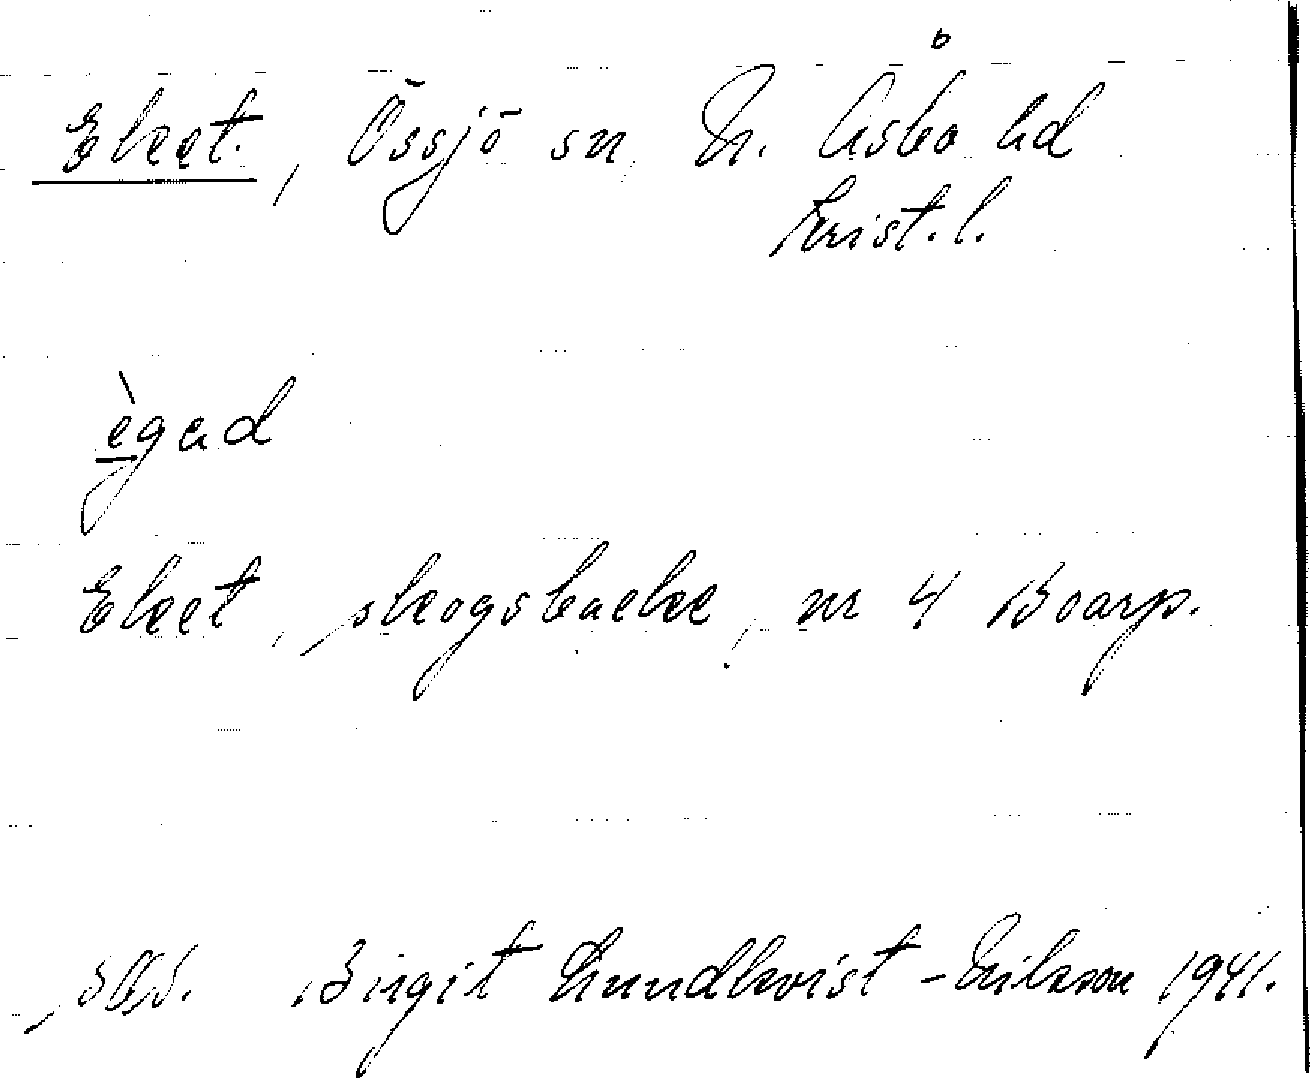 Eket, Össjö sn, N. Åsbo hd
Krist. l.
ègad
Eket, skogsbacke, nr 4 Boarp.
Birgit Lundkvist - Eriksson 1941.